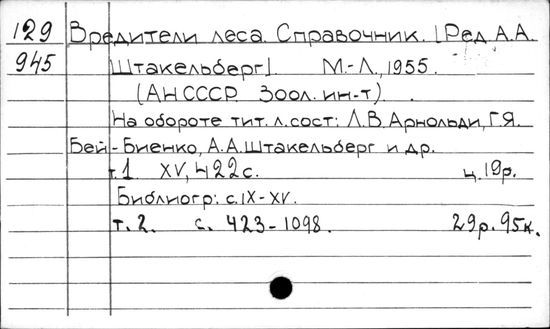 129 Вредители леса. Справочник. [Ред. А.А.
945 Штакельберг]. М.-Л., 1955.
(АН СССР. Зоол. ин-т).
На обороте тит. л. сост: Л.В. Арнольди, Г.Я.
Бей-Биенко, А.А. Штакельберг и др.
т.1 XV, 422 с. ц. 19р.
Библиогр: с. IX-XV.
т. 2. с. 423-1098. 29р. 95к.